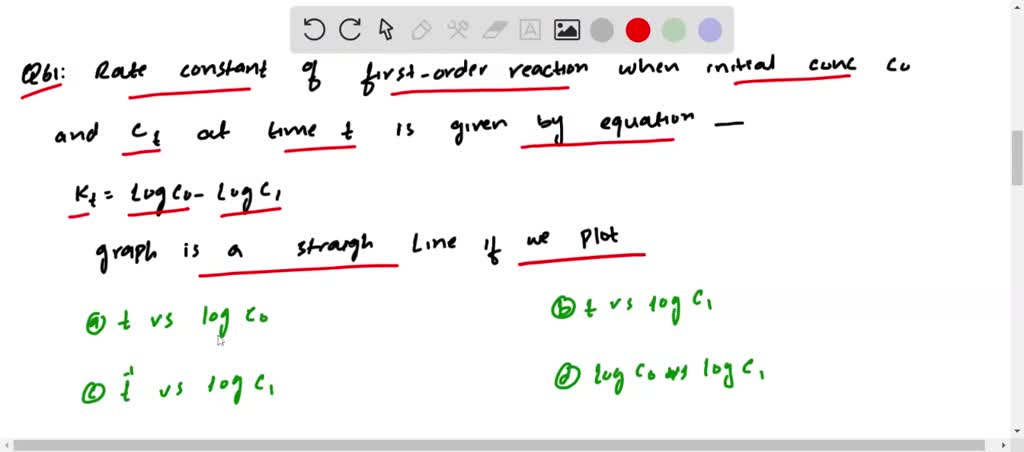 Q61: Rate constant of first-order reaction when initial conc c₀
and Cₜ at time t is given by equation —
Kₜ = log C₀ - log C₁
graph is a straigh line if we plot
ⓐ t vs log C₀
ⓑ t vs log C₁
ⓒ t⁻¹ vs log C₁
ⓓ log C₀ vs log C₁